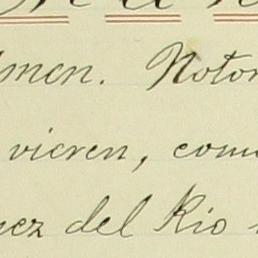 men. Notor
vieren, como
ez del Rio